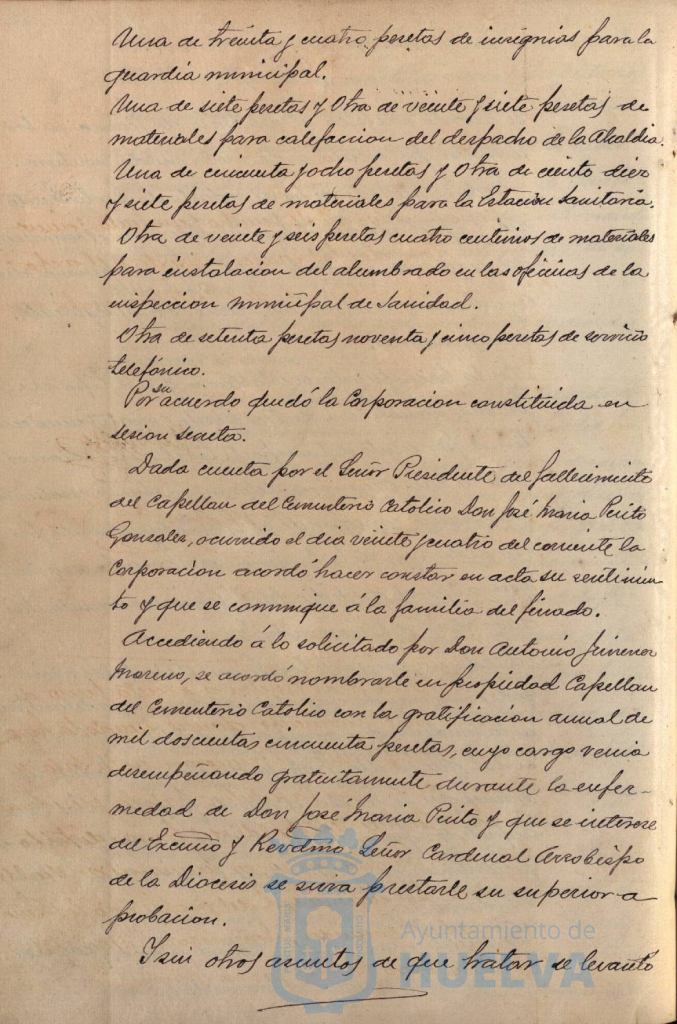 Una de treinta y cuatro pesetas de insignias para la
guardia municipal.
Una de siete pesetas y Otra de veinte y siete pesetas de
materiales para calefaccion del despacho de la Alcaldia.
Una de cincuenta y ocho pesetas y Otra de ciento diez
y siete pesetas de materiales para la Estacion Sanitaria.
Otra de veinte y seis pesetas cuatro centimos de materiales
para instalacion del alumbrado en las oficinas de la
inspeccion municipal de Sanidad.
Otra de setenta pesetas noventa y cinco pesetas de servicio
telefónico.
Por su acuerdo quedó la Corporacion constituida en
sesion secreta.
Dada cuenta por el Señor Presidente del fallecimiento
del Capellan del Cementerio Catolico Don José Maria Pinto
Gonzalez, ocurrido el dia veinte y cuatro del corriente la
Corporacion acordó hacer constar en acta su sentimien
to y que se comunique á la familia del finado.
Accediendo á lo solicitado por Don Antonio Jimenez
Moreno, se acordó nombrarle en propiedad Capellan
del Cementerio Catolico con la gratificacion anual de
mil doscientas cincuenta pesetas, cuyo cargo venia
desempeñando gratuitamente durante la enfer-
medad de Don José Maria Pinto y que se interese
del Excmo y Revdmo Señor Cardenal Arzobispo
de la Diocesis se sirva prestarle su superior a
probacion.
Y sin otros asuntos de que tratar se levantó
Ayuntamiento de
HUELVA